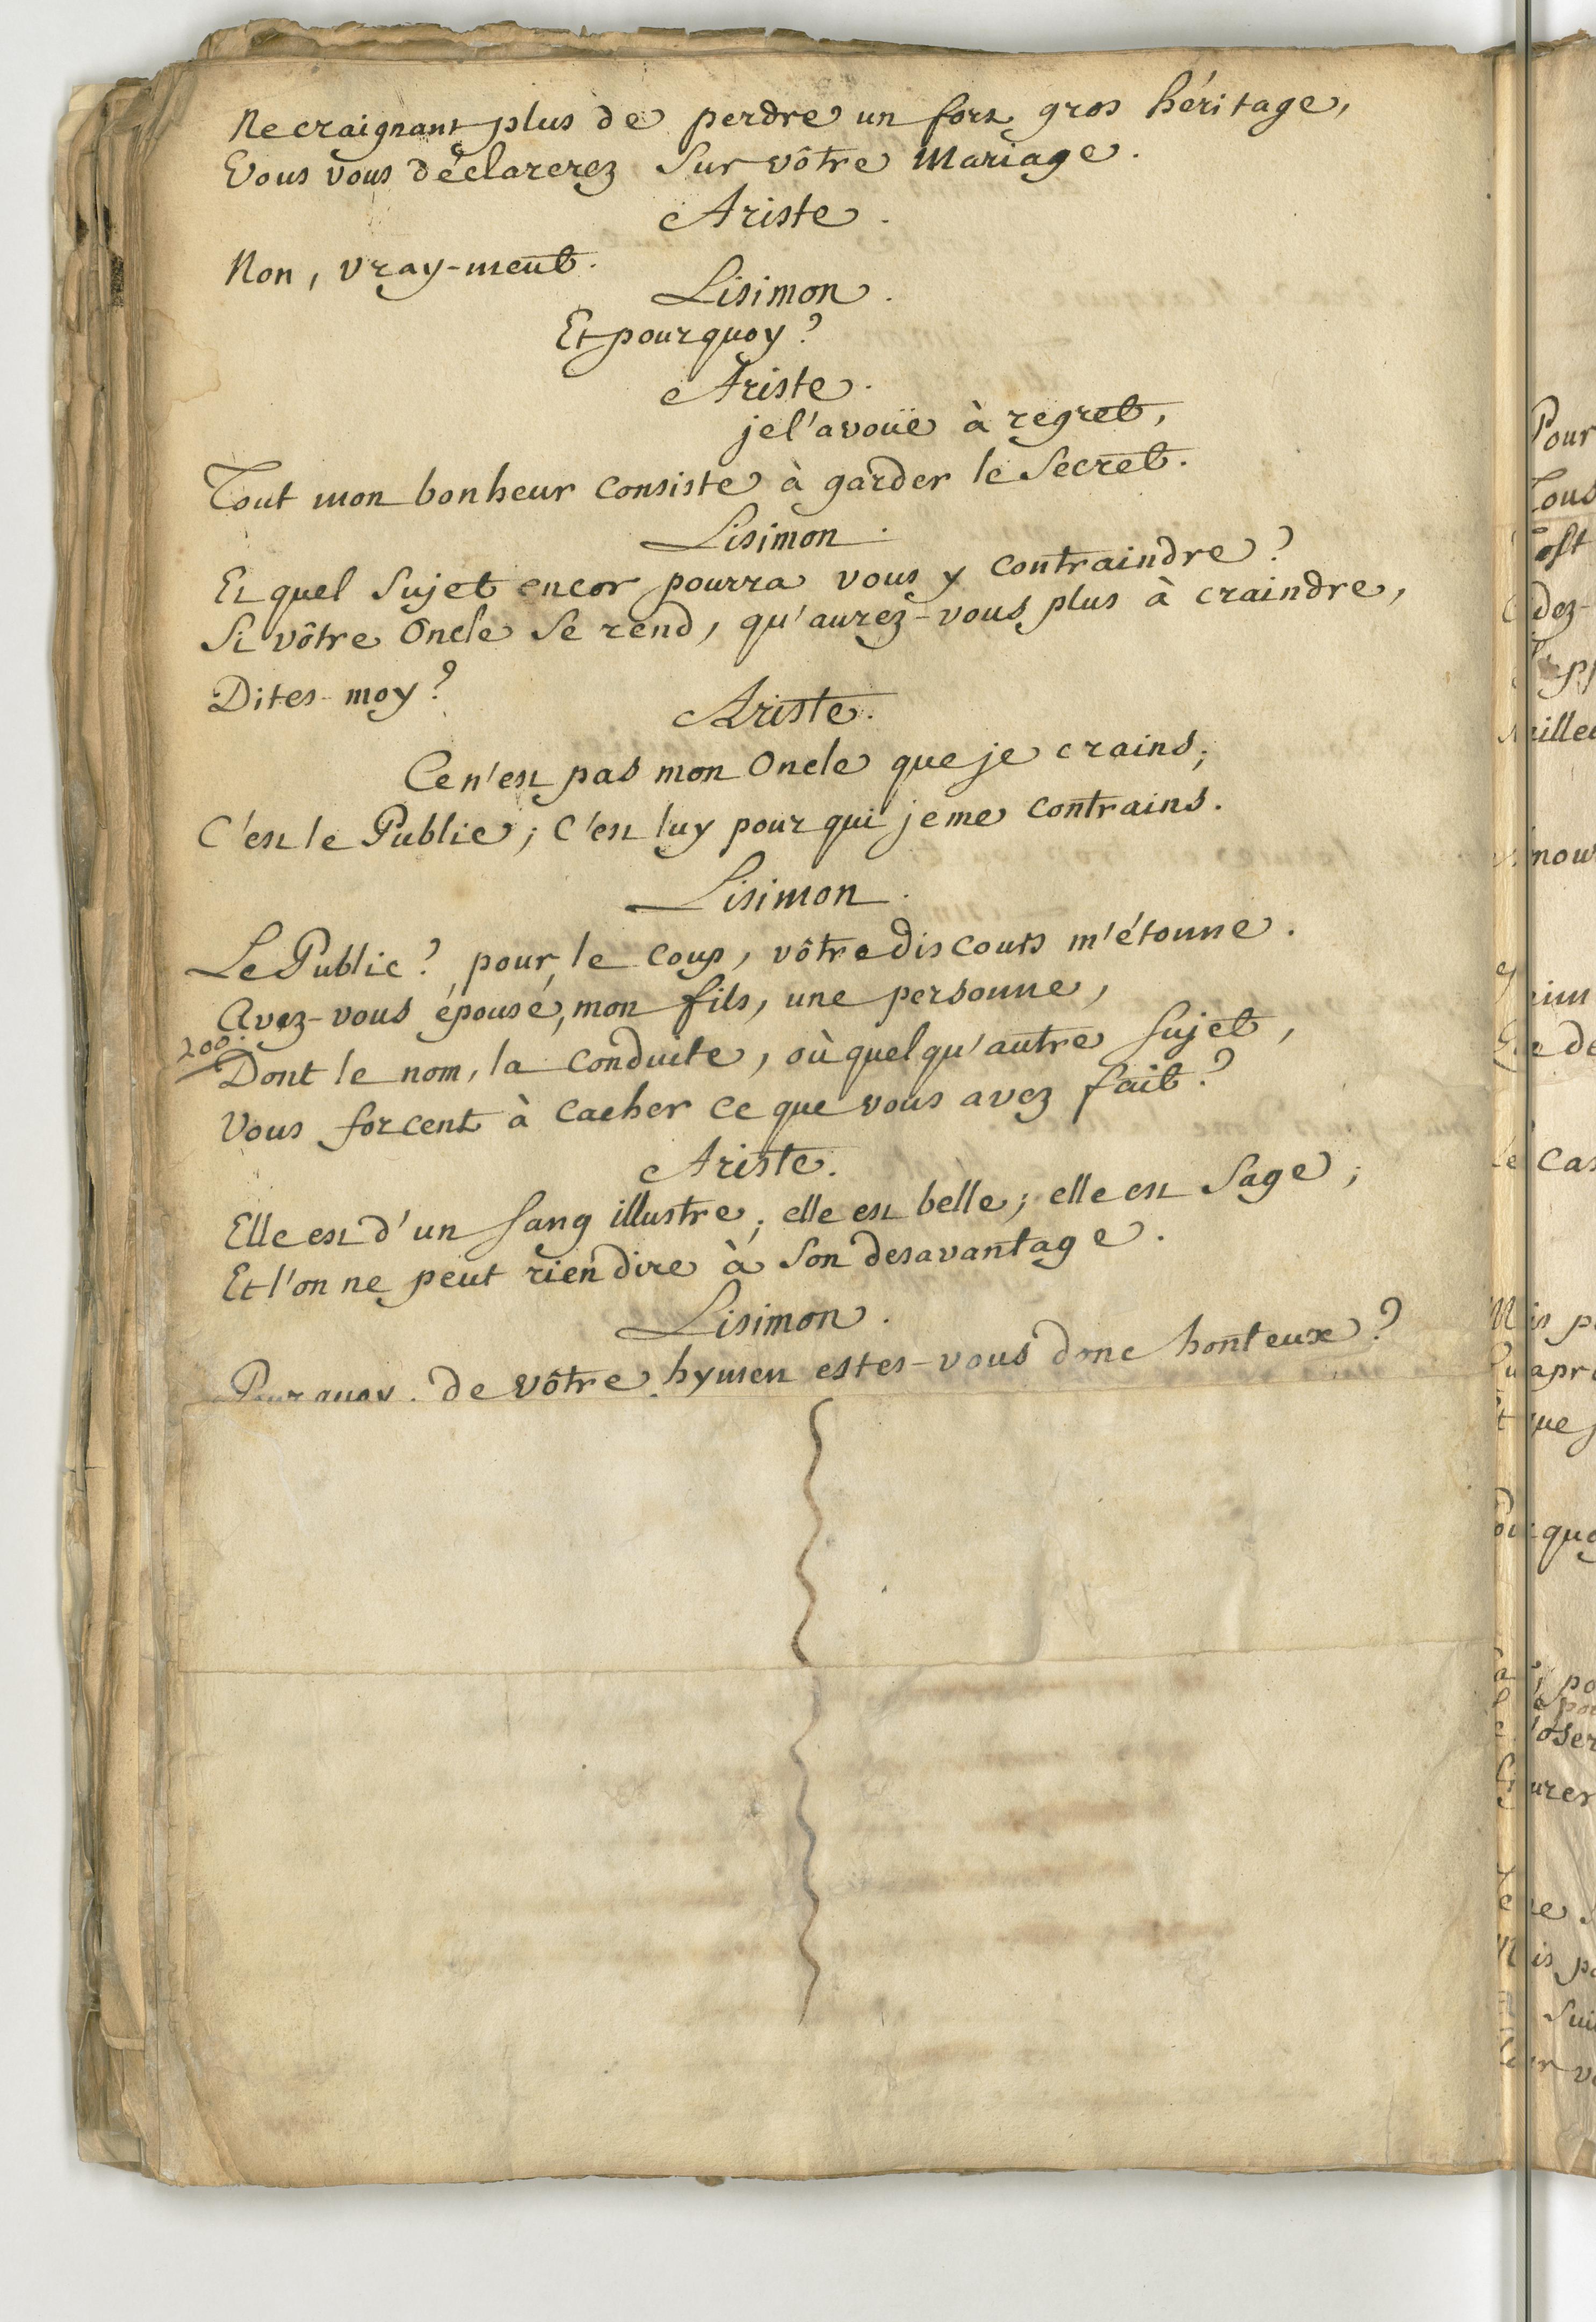 Ne craignant plus de perdre un fort gros héritage,
Vous vous déclarerez Sur vôtre Mariage.
Ariste.
Non, vray-ment.
Lisimon.
Et pourquoy?
Ariste.
je l'avoüe à regret,
Tout mon bonheur Consiste à garder le Secret.
Lisimon.
Et quel Sujet encor pourra vous y Contraindre?
Si vôtre Oncle Se rend, qu'aurez-vous plus à craindre,
Dites-moy?
Ariste.
Ce n'est pas mon Oncle que je crains;
C'est le Public; C'est luy pour qui je me Contrains.
Lisimon.
Le Public? pour le Coup, vôtre discours m'étonne.
Avez-vous épousé, mon fils, une personne,
200. Dont le nom, la Conduite, où quelqu'autre Sujet,
Vous forcent à Cacher Ce que vous avez fait?
Ariste.
Elle est d'un Sang illustre; elle est belle; elle est Sage;
Et l'on ne peut rien dire à Son desavantage.
Lisimon.
Pourquoy de vôtre hymen estes-vous donc honteux?
Pour
dez-